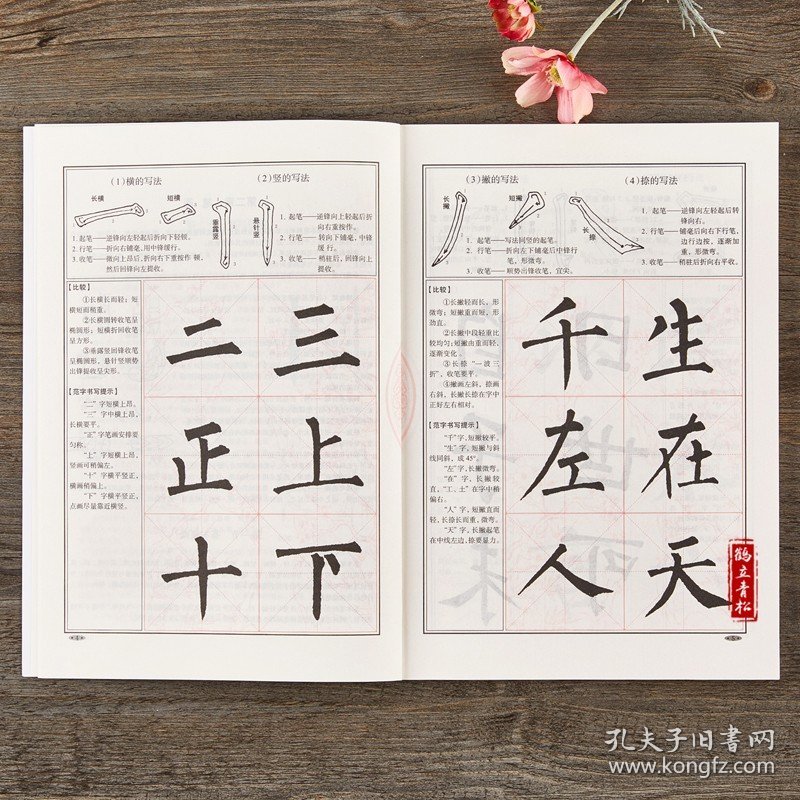 (1)横的写法
(2)竖的写法
长横
短横
垂露竖
悬针竖
1. 起笔——逆锋向左轻起后折向下轻顿。
2. 行笔——折向右铺毫,用中锋缓行。
3. 收笔——微向上昂后,折向右下重按作 顿,
然后回锋向左提收。
1. 起笔——逆锋向上轻起后折
向右重按作。
2. 行笔——转向下铺毫,中锋
缓 行。
3. 收笔——稍驻后,回锋向上
提收。
【比较】
①长横长而轻;短
横短而稍重。
②长横圆转收笔呈
椭圆形;短横折回收笔
呈方形。
③垂露竖回锋收笔
呈椭圆形,悬针竖顺势
出锋提收呈尖形。
【范字书写提示】
“二”字短横上昂。
“三”字中横上昂,
长横要平。
“正”字笔画安排要
匀称。
“上”字短横上昂,
竖画可稍偏左。
“十”字横平竖正,
横画稍偏上。
“下”字横平竖正,
点画尽量靠近横竖。
二 三
正 上
十 下
4
(3)撇的写法
(4)捺的写法
长撇
短撇
长捺
1. 起笔——写法同竖的起笔。
2. 行笔——折向左下铺毫后中锋行
笔,形微弯。
3. 收笔——顺势出锋收笔,宜尖。
1. 起笔——逆锋向左轻起后转
锋向右。
2. 行笔——铺毫后向右下行笔,
边行边按,逐渐加
重,形微弯。
3. 收笔——稍驻后折向右平收。
【比较】
①长撇轻而长,形
微弯;短撇重而短,形
劲直。
②长撇中段轻重比
较均匀;短撇由重而轻,
逐渐变化。
③长捺“一波三
折”,收笔要平。
④撇画左斜,捺画
右斜,长撇长捺在字中
正好左右相对。
【范字书写提示】
“千”字,短撇较平。
“生”字,短撇与斜
线同斜,成45°。
“左”字,长撇微弯。
“在”字,长撇较
直,“工、土”在字中稍
偏右。
“人”字,短撇直而
轻,长捺长而重,微弯。
“天”字,长撇起笔
在中线左边,捺要显力。
千 生
左 在
人 天
5
鹤立青松
孔夫子旧书网
www.kongfz.com